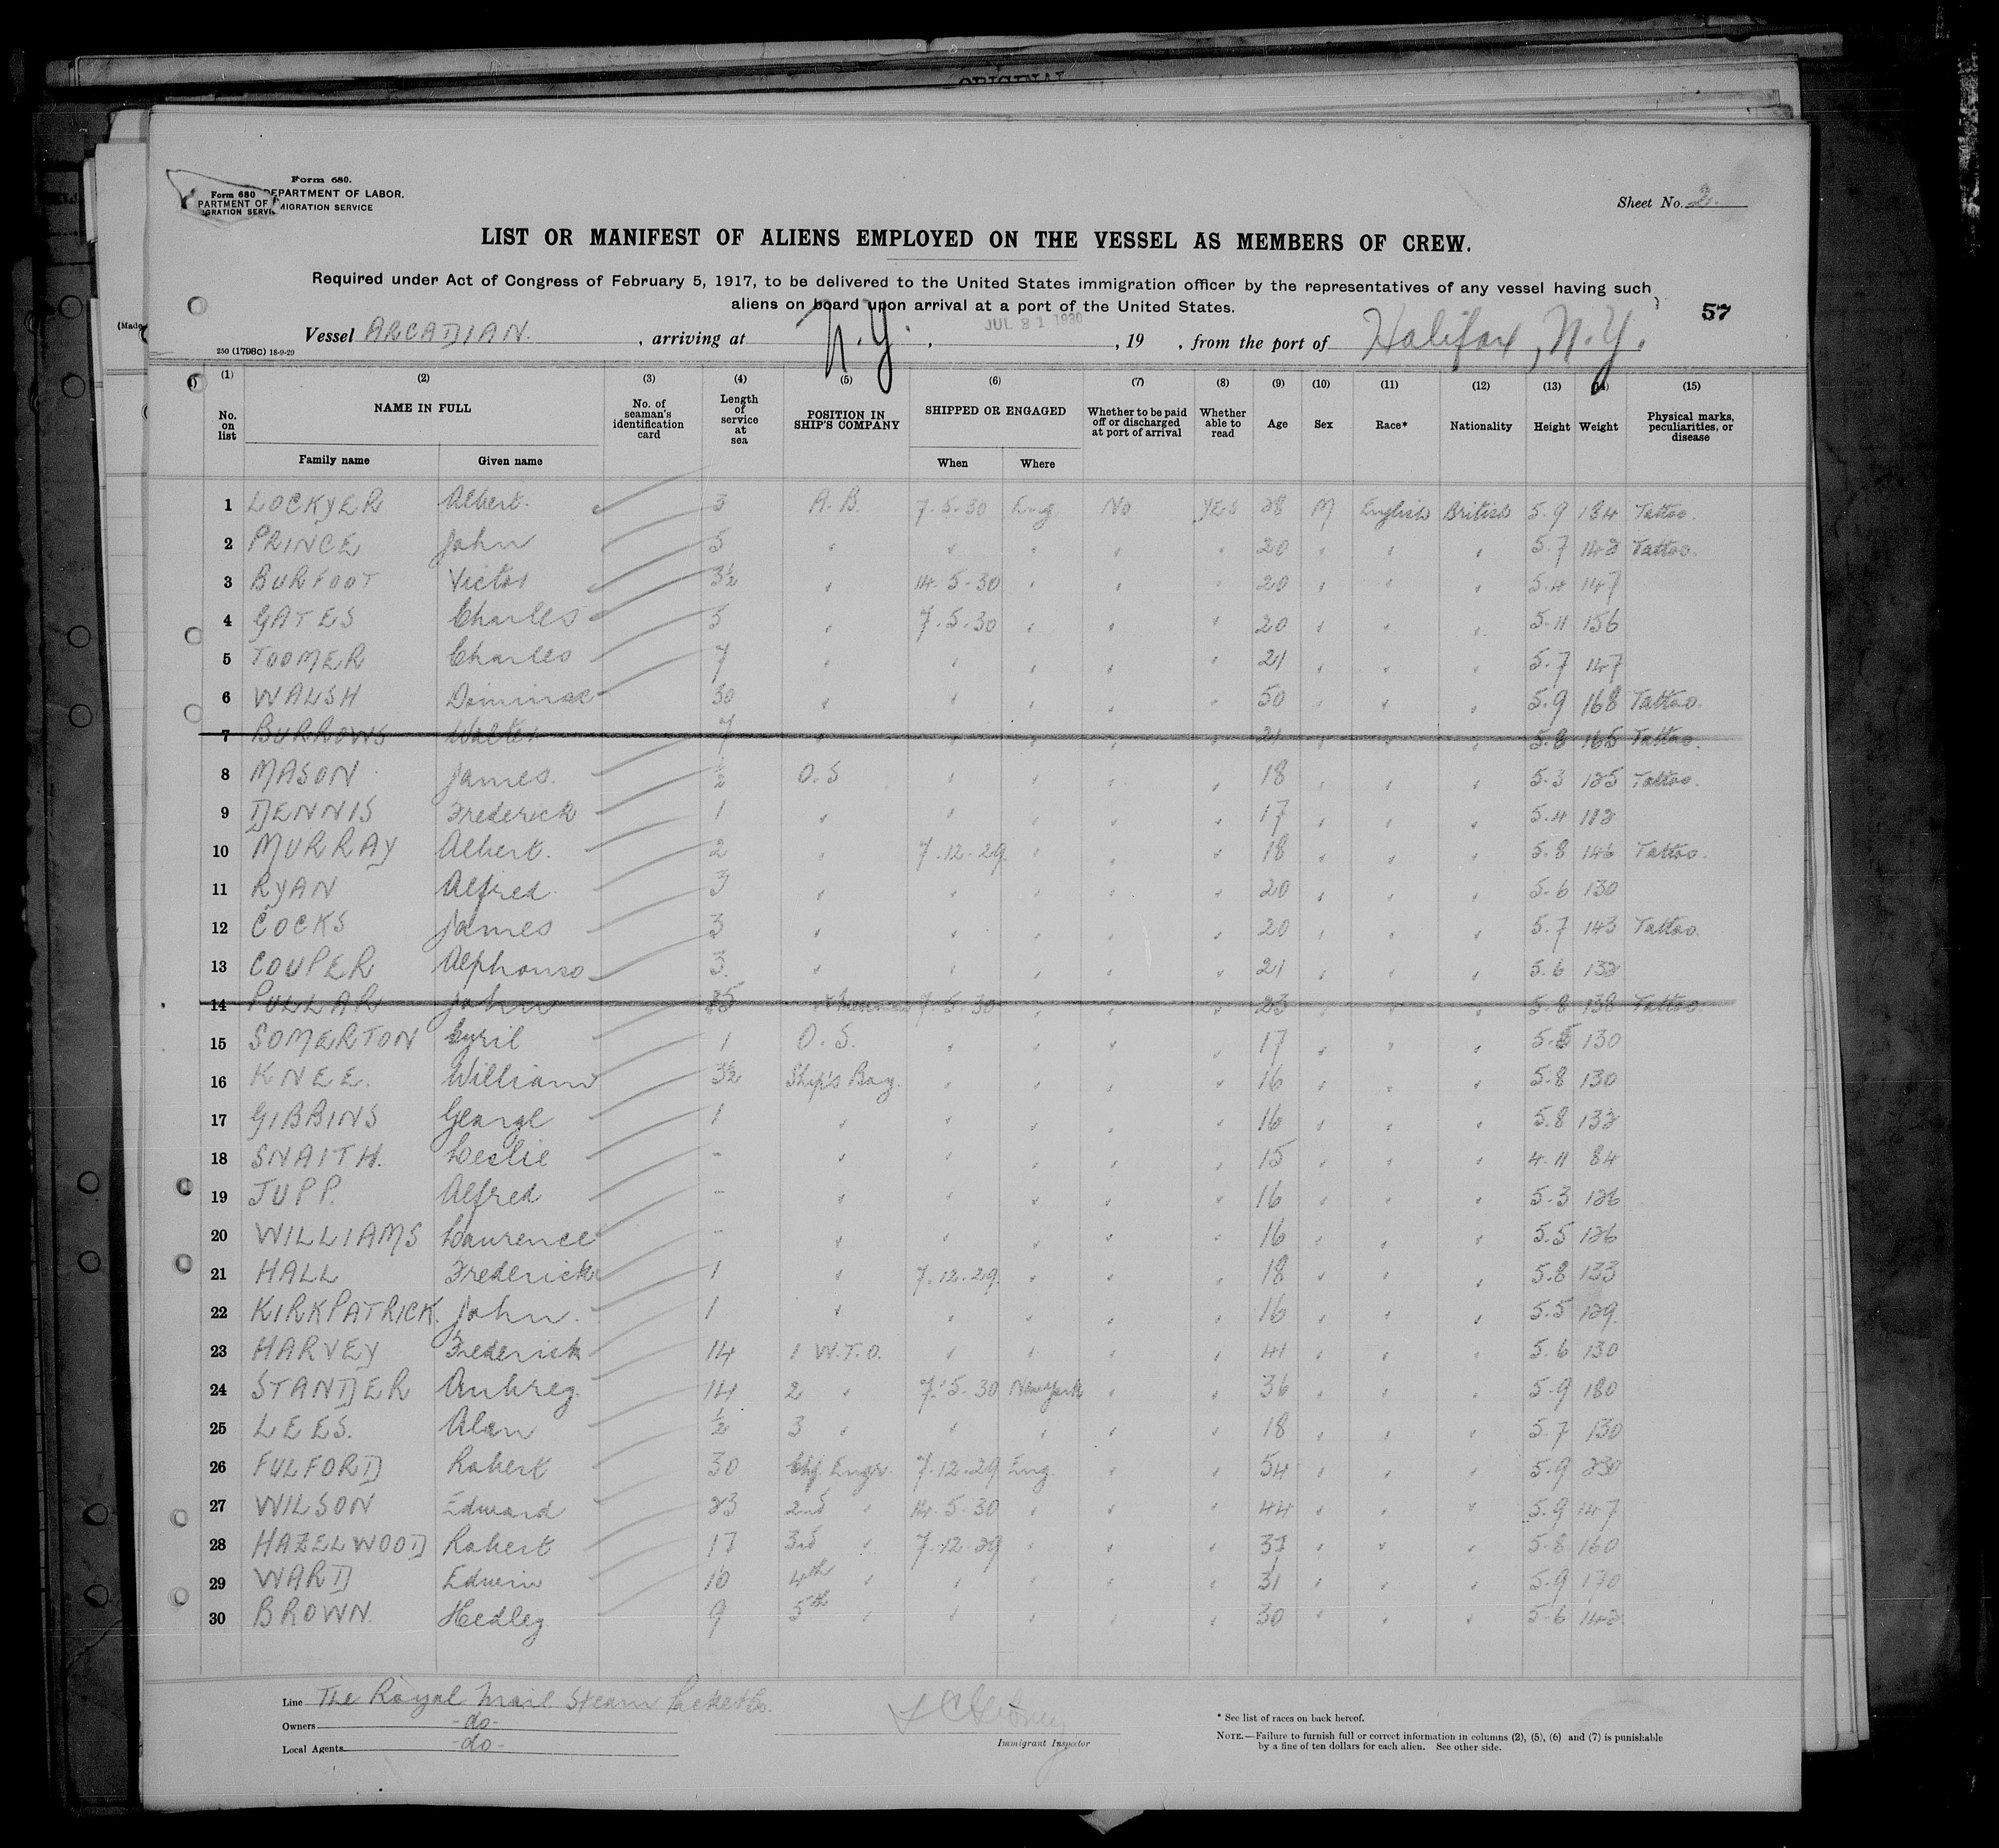 ORIGINAL
Form 680.
Form 680 DEPARTMENT OF LABOR.
PARTMENT OF MIGRATION SERVICE
IGRATION SERVI
Sheet No. 2.
LIST OR MANIFEST OF ALIENS EMPLOYED ON THE VESSEL AS MEMBERS OF CREW.
Required under Act of Congress of February 5, 1917, to be delivered to the United States immigration officer by the representatives of any vessel having such
aliens on board upon arrival at a port of the United States.
57
(Made
Vessel ARCADIAN. , arriving at N.Y. , JUL 31 1930 , 19 , from the port of Halifax, N.Y.
250 (1798c) 18-9-29
(1) (2) (3) (4) (5) (6) (7) (8) (9) (10) (11) (12) (13) (14) (15)
No. on list NAME IN FULL No. of seaman's identification card Length of service at sea POSITION IN SHIP'S COMPANY SHIPPED OR ENGAGED Whether to be paid off or discharged at port of arrival Whether able to read Age Sex Race* Nationality Height Weight Physical marks, peculiarities, or disease
Family name Given name When Where
1 LOCKYER Albert. 3 A.B. 7.5.30 Eng No YES 28 M English British 5.9 134 Tattoo.
2 PRINCE John 5 " " " " " 20 " " " 5.7 142 Tattoo.
3 BURFOOT Victor 3½ " 14.5.30 " " " 20 " " " 5.4 147
4 GATES Charles 5 " 7.5.30 " " " 20 " " " 5.11 156
5 TOOMER Charles 7 " " " " " 21 " " " 5.7 147
6 WALSH Dominac 30 " " " " " 50 " " " 5.9 168 Tattoo.
7 BURROWS Walter 7 " " " " " 21 " " " 5.8 165 Tattoo.
8 MASON James. ½ O.S " " " " 18 " " " 5.3 125 Tattoo.
9 DENNIS Frederick 1 " " " " " 17 " " " 5.4 112
10 MURRAY Albert. 2 " 7.12.29. " " " 18 " " " 5.8 146 Tattoo.
11 RYAN Alfred. 3 " " " " " 20 " " " 5.6 130
12 COCKS James 3 " " " " " 20 " " " 5.7 143 Tattoo.
13 COUPER Alphonso 3. " " " " " 21 " " " 5.6 132
14 PULLAR John 7.5.30 " " " 23 " " " 5.8 138 Tattoo.
15 SOMERTON Cyril 1 O.S. " " " " 17 " " " 5.5 130
16 KNEE. William 3½ Ship's Boy. " " " " 16 " " " 5.8 130
17 GIBBINS George 1 " " " " " 16 " " " 5.8 132
18 SNAITH. Leslie - " " " " " 15 " " " 4.11 84
19 JUPP. Alfred - " " " " " 16 " " " 5.3 126
20 WILLIAMS Laurence - " " " " " 16 " " " 5.5 126
21 HALL Frederick 1 " 7.12.29. " " " 18 " " " 5.8 133
22 KIRKPATRICK. John. 1 " " " " " 16 " " " 5.5 129.
23 HARVEY Frederick 14 1 W.T.O. " " " " 41 " " " 5.6 130
24 STANDER Aubrey. 14 2 " 7.5.30 New York " " 36 " " " 5.9 180
25 LEES. Alan ½ 3 " " " " " 18 " " " 5.7 130
26 FULFORD Robert 30 Chf. Engr. 7.12.29 Eng. " " 54 " " " 5.9 230
27 WILSON Edward 23 2nd " 14.5.30 " " " 44 " " " 5.9 147
28 HAZELWOOD Robert 17 3rd " 7.12.29 " " " 37 " " " 5.8 160
29 WARD Edwin 10 4th " " " " " 31 " " " 5.9 170
30 BROWN. Hedley 9 5th " " " " " 30 " " " 5.6 142
Line The Royal Mail Steam Packet Co.
Owners -do-
Local Agents -do-
Immigrant Inspector
* See list of races on back hereof.
NOTE.—Failure to furnish full or correct information in columns (2), (5), (6) and (7) is punishable
by a fine of ten dollars for each alien. See other side.